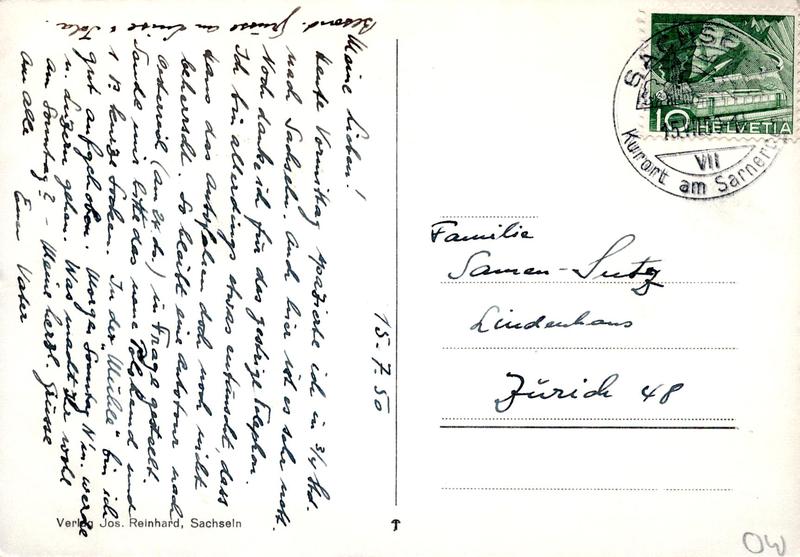 15-7.50
Meine Lieben!
Heute Vormittag spazierte ich in 3/4 Std.
nach Sachseln. Auch hier ist es sehr nett.
Noch danke ich für das gestrige Telephon.
Ich bin allerdings etwas entäuscht, dass
Hans das Autofahren doch noch nicht
beherrscht. So bleibt eine Autotour nach
(am 24. ds.) in Frage gestellt.
Sende mir bitte das neue Polohemd und
1 P. kurze Socken. In der "Mühle" bin ich
gut aufgehoben. Morgen Sonntag N'm. werde
n. Luzern gehen. Was macht Ihr wohl
am Sonntag? - Meine herzl. Grüsse
an alle Euer Vater
Besond. Grüsse an Luise &
Familie
Samen-Sutz
Lindenhaus
Zürich 48
SACHSELN
15.VII.50
VII
Kurort am Sarnersee
10 HELVETIA
Verlag Jos. Reinhard, Sachseln
OW